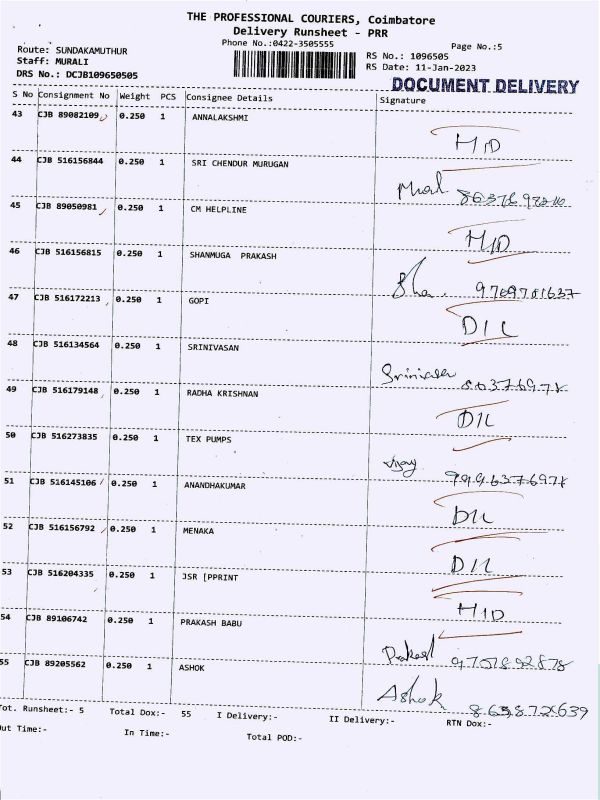 THE PROFESSIONAL COURIERS, Coimbatore
Delivery Runsheet - PRR
Phone No.:0422-3505555
Page No.:5
Route: SUNDAKAMUTHUR
Staff: MURALI
DRS No.: DCJB109650505
RS No.: 1096505
RS Date: 11-Jan-2023
DOCUMENT DELIVERY
S No Consignment No Weight PCS Consignee Details Signature
43 CJB 89082109 0.250 1 ANNALAKSHMI H/D
44 CJB 516156844 0.250 1 SRI CHENDUR MURUGAN
45 CJB 89050981 0.250 1 CM HELPLINE H/D
46 CJB 516156815 0.250 1 SHANMUGA PRAKASH Sha. 9709701637
47 CJB 516172213 0.250 1 GOPI D/L
48 CJB 516134564 0.250 1 SRINIVASAN Srinivasan
49 CJB 516179148 0.250 1 RADHA KRISHNAN D/L
50 CJB 516273835 0.250 1 TEX PUMPS Vijay
51 CJB 516145106 0.250 1 ANANDHAKUMAR D/L
52 CJB 516156792 0.250 1 MENAKA D/L
53 CJB 516204335 0.250 1 JSR [PPRINT H/D
54 CJB 89106742 0.250 1 PRAKASH BABU Prakash
55 CJB 89205562 0.250 1 ASHOK Ashok
Tot. Runsheet:- 5 Total Dox:- 55 I Delivery:- II Delivery:- RTN Dox:-
Out Time:- In Time:- Total POD:-